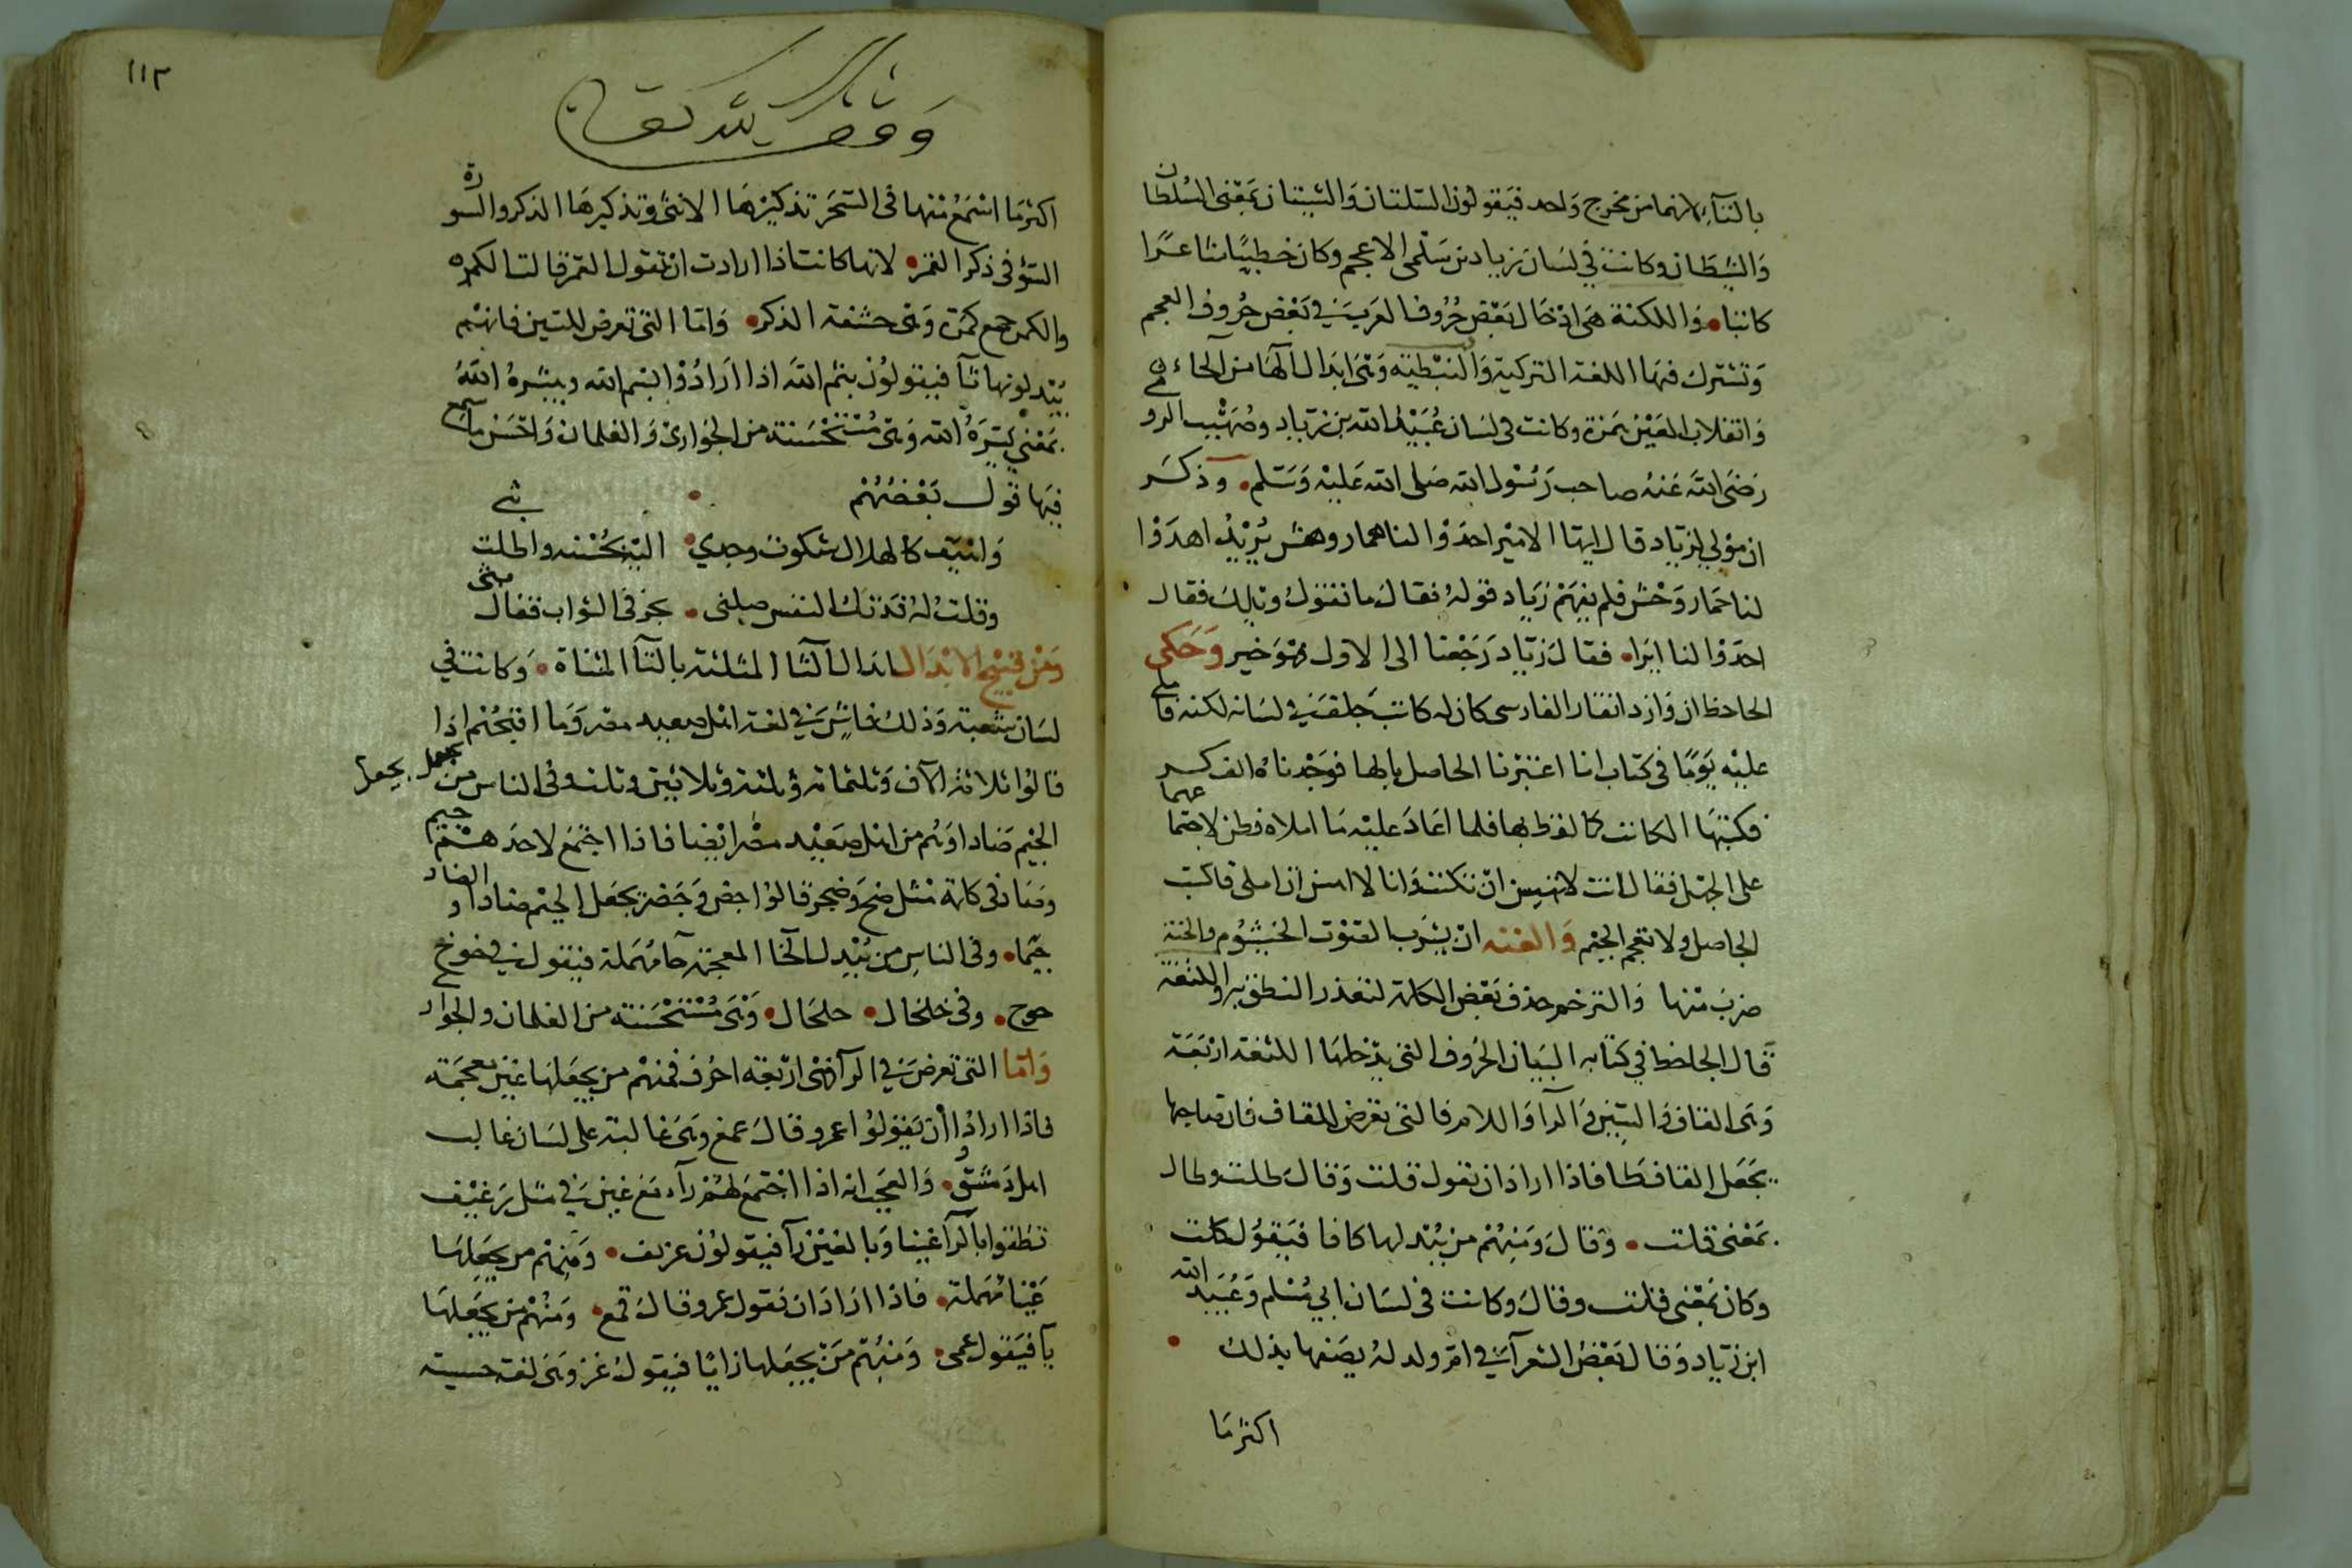 بالتآء لانهما من مخرج واحد فيقولون السلتان والشيتان بمعنى السلطان
والشيطان وكانت في لسان زياد بن سلمى الاعجم وكان خطيبًا شاعرًا
كاتبا • واللكنة هى ادخال بعض حروف العرب في بعض حروف العجم
وتشترك فيها اللغة التركية والنبطية وهى ابدال الهآ من الحاء
وانقلاب العين همزة وكانت فى لسان عُبَيْد الله بن زياد وصُهَيْب الرو
رضى الله عنه صاحب رسول الله صلى الله عليه وسلم • وذكر
ان مولى لزياد قال ايها الامير احدوا لنا همار وهش يريد اهدوا
لنا حمار وحش فلم يفهم زياد قوله فقال ما تقول ويلك فقال
احدوا لنا ايرا • فقال زياد رجعنا الى الاول فهو خير وحكى
الجاحظ ان وازدانقار الفارسى كان له كاتب في لسانه لكنة فاملى
عليه يومًا فى كتاب انا اعتبرنا الحاصل بالها فوجدناه الف كر
فكتبها الكاتب كما لفظ بها فلما اعاد عليه ما املاه فطن لاجتماعهما
على الجهل فقال انت لا تهسن ان تكتب وانا لا اهسن ان املى فاكتب
الجاصل ولا تعجم الجيم والغنه ان يشرب الصوت الخيشوم والخنة
ضرب منها والترخيم حذف بعض الكلمة لتعذر النطق به واللثغة
قال الجاحظ في كتابه البيان الحروف التى يدخلها اللثغة اربعة
وهى القاف والسين والرا واللام فالتى تعرض للقاف فان صاحبها
يجعل القاف طا فاذا اراد ان يقول قلت وقال طلت وطال
بمعنى قلت • وقال ومنهم من يبدلها كافا فيقول كلت
وكان بمعنى قلت وقال وكانت فى لسان ابي مسلم وعبيد الله
ابن زياد وقال بعض الشعرآ في ام ولد له يصفها بذلك •
اكثر ما
١١٢
وقف لله تعالى
اكثر ما اسمع منها فى السحر تذكيرها الانثى وتذكيرها الذكر والسورة
السؤ فى ذكر القمر • لانها كانت اذا ارادت ان تقول القمر قالت الكمره
والكمر جمع كمرة وهى حشفة الذكر • واما التى تعرض للسين فانهم
يبدلونها ثآ فيقولون بثم الله اذا ارادوا بسم الله ويثره الله
بمعنى يسره الله وهى مستحسنة من الجوارى والغلمان واحسن ما سمع
فيها قول بعضهم •
واهيف كالهلال شكوت وجدي • اليه لحسنه واطلت بثى
وقلت له فدتك النفس صلنى • تحز فى الثواب فقال
ومن قبيح الابدال ابدال الثا المثلثه بالتآ المثناة • وكانت في
لسان شعبة وذلك فاشٍ في لغة اهل صعيد مصر وما اقبحهم اذا
قالوا تلاتة الاف وتلتماتة وتلتة وتلاتين وتلت وفى الناس من يجعل يجعل
الجيم ضادا وهم من اهل صعيد مصر ايضا فاذا اجتمع لاحدهم جيم
وضاد فى كلمة مثل ضج وضجر قالوا جض وجضر يجعل الجيم ضادا والضاد
جيما • وفى الناس من يبدل الخا المعجمة حآ مهملة فيقول في خوخ
حوح • وفى خلخال • حلحال • وهى مستحسنة من الغلمان والجوار
واما التى تعرض في الرآ فهى اربعة احرف فمنهم من يجعلها غين معجمة
فاذا ارادوا ان يقولوا عمرو قال عمغ وهى غالبة على لسان غالب
اهل دمشق • والعجب انه اذا اجتمع لهم رآ مع غين في مثل رغيف
نطقوا بالرآ غينا وبالغين رآ فيقولون غريف • ومنهم من يجعلها
عَيْنا مهملة • فاذا اراد ان يقول عمرو قال عمع • ومنهم من يجعلها
يآ فيقول عمى • ومنهم من يجعلها زايًا فيقول عمز وهى لغة